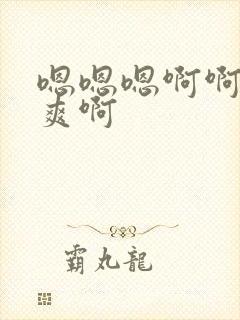 嗯嗯嗯啊啊
爽啊
霸丸龍